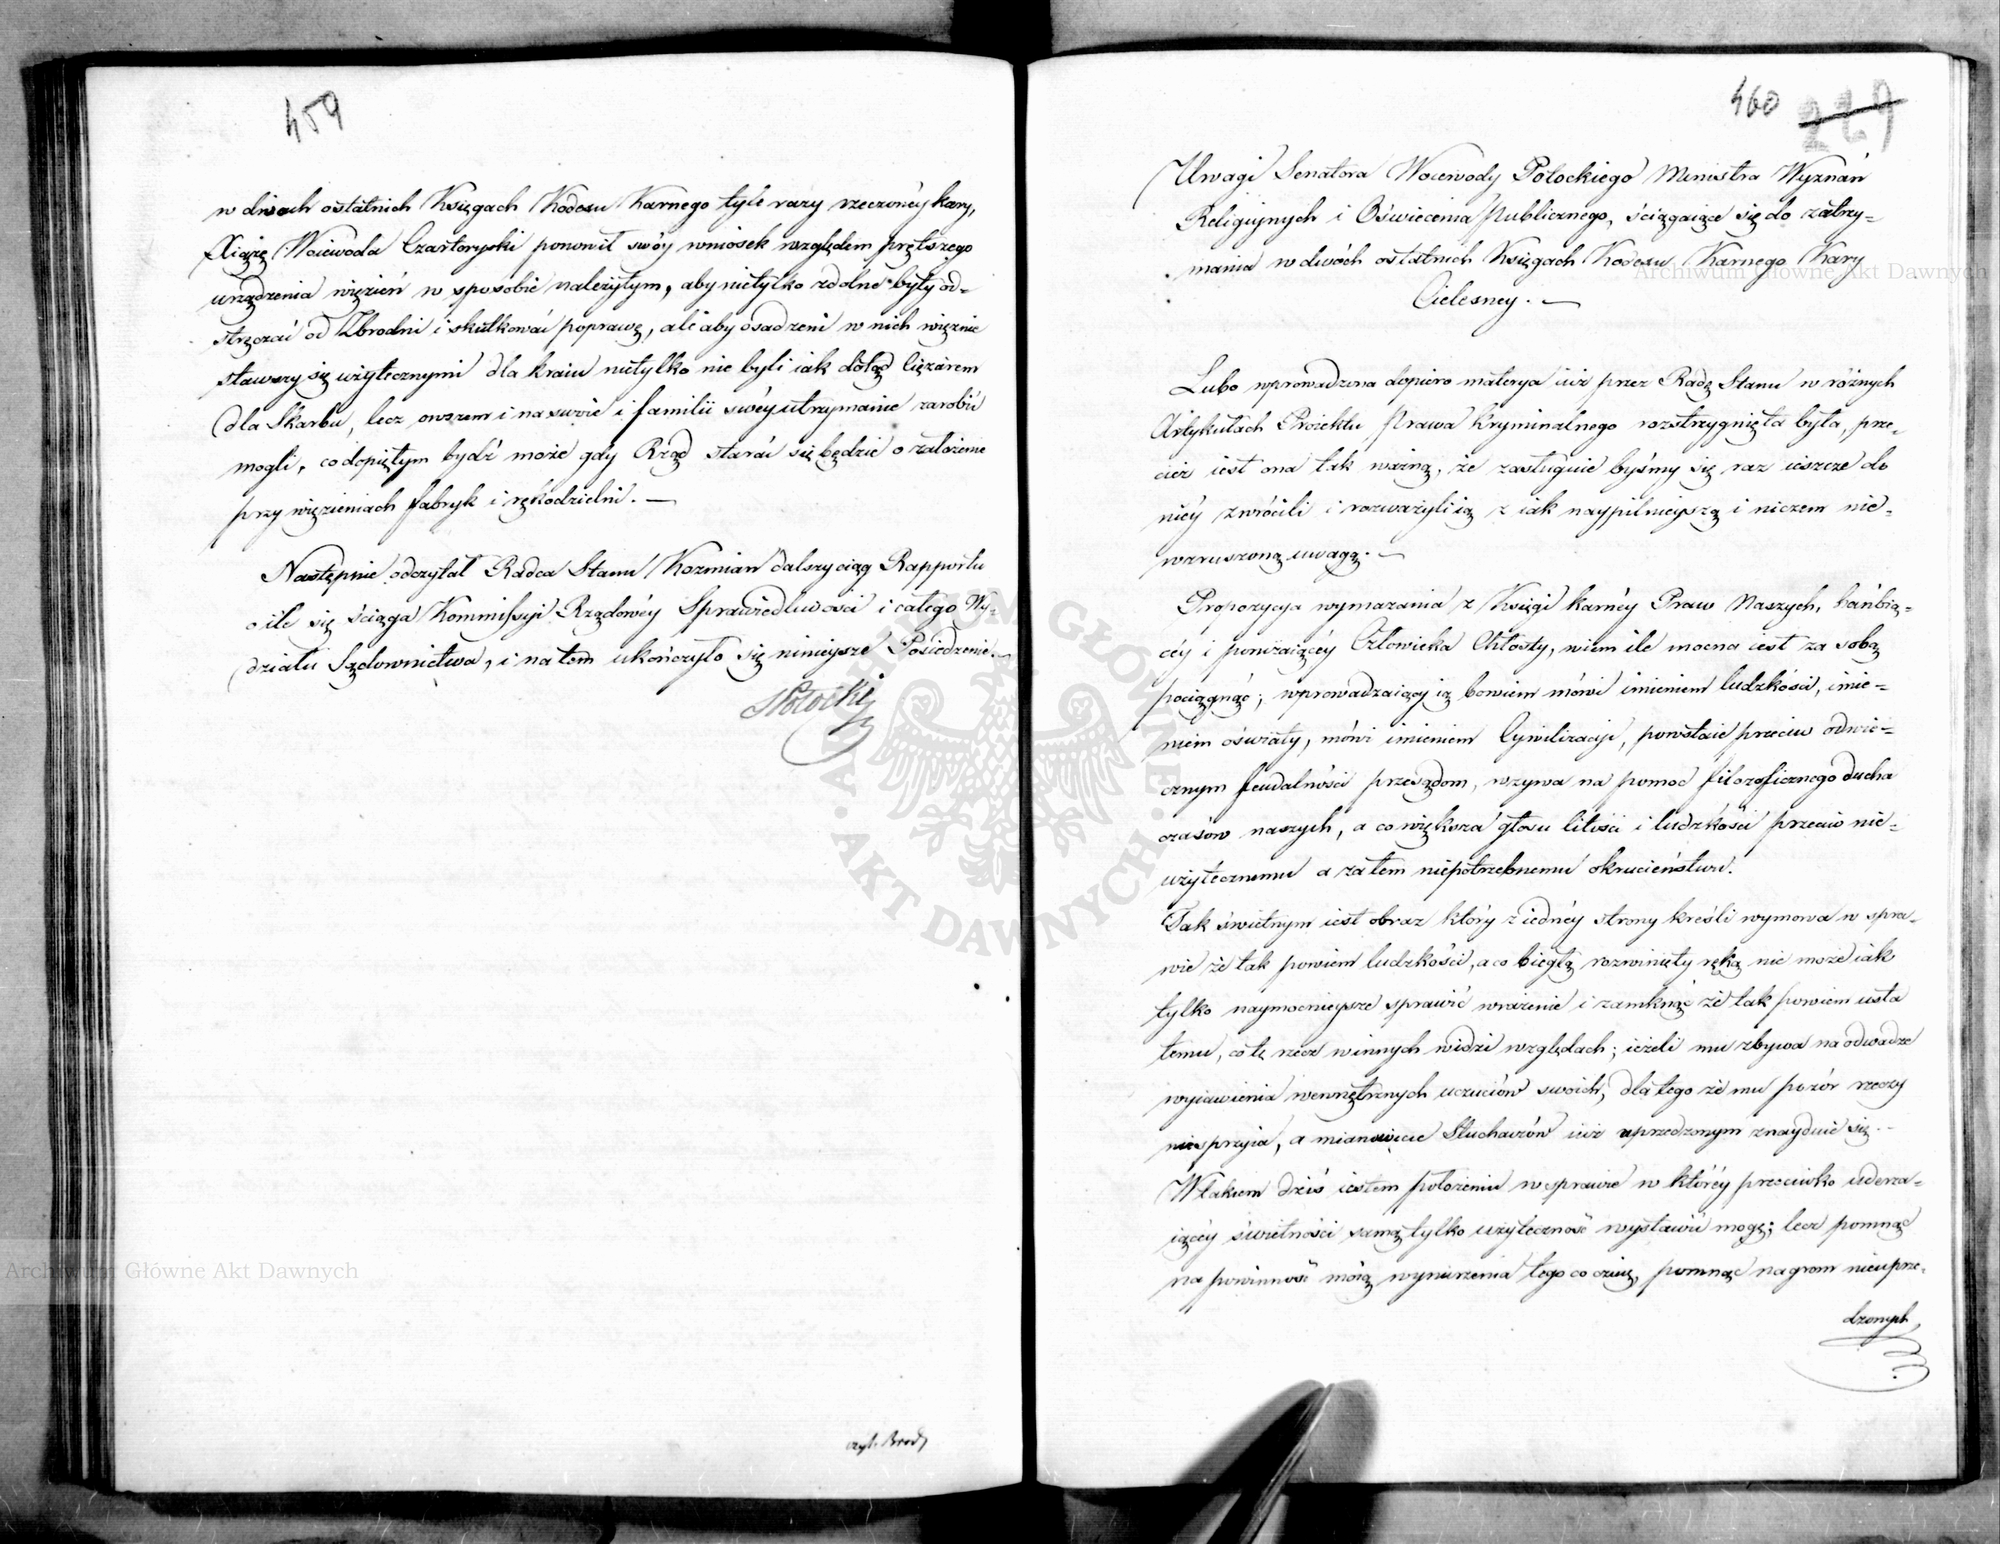 459
w dwóch ostatnich Księgach Kodexu Karnego tyle razy rzeczonéy kary,
Xiążę Woiewoda Czartoryski ponowił swóy wniosek względem prętszego
urządzenia więzień w sposobie należytym, aby nietylko zdolne były od=
stręczać od Zbrodni i skutkować poprawę, ale aby osadzeni w nich więznie
stawszy się użytecznymi dla kraiu nietylko nie byli iak dotąd Ciężarem
dla Skarbu, lecz owszem i na swoie i familii swéy utrzymanie zarobić
mogli, co dopiętym bydź może gdy Rząd starać się będzie o założenie
przy więzieniach fabryk i rękodzielni. —
Następnie odczytał Radca Stanu Kozmian dalszy ciąg Rapportu
o ile się ściąga Kommissyi Rządowéy Sprawiedliwości i całego Wy=
działu Sądownictwa, i na tem ukończyło się ninieysze Posiedzenie. —
Potocki
czyt. Brodz
460 229
Uwagi Senatora Woiewody Potockiego Ministra Wyznań
Religiynych i Oświecenia Publicznego, ściągaiące się do zatrzy=
mania w dwóch ostatnich Księgach Kodexu Karnego Kary
Cielesney. —
Lubo wprowadzona dopiero materya iuż przez Radę Stanu w różnych
Artykułach Proiektu Prawa Kryminalnego rozstrzygnięta była, prze=
cież iest ona tak ważną, że zasługuie byśmy się raz ieszcze do
niéy zwrócili i rozważyli ią z iak naypilnieyszą i niczem nie=
wzruszoną uwagą. —
Propozycya wymazania z Księgi karnéy Praw Naszych, hańbią=
céy i poniżaiącéy Człowieka Chłosty, wiem ile mocna iest za sobą
pociągnąć; wprowadzaiący ią bowiem mówi imieniem ludzkości, imie=
niem oświaty, mówi imieniem Cywilizacyi, powstaie przeciw odwie=
cznym feudalności przesądom, wzywa na pomoc filozoficznego ducha
czasów naszych, a co większa głosu litości i ludzkości przeciw nie=
użytecznemu a zatem niepotrzebnemu okrucieństwu.
Tak świetnym iest obraz który z iednéy strony kreśli wymowa w spra=
wie że tak powiem ludzkości, a co biegłą rozwinięty ręką nie może iak
tylko naymocnieysze sprawić wrażenie i zamknąć że tak powiem usta
temu, co tę rzecz w innych widzi względach; ieżeli mu zbywa na odwadze
wyiawienia wewnętrznych uczuciów swoich, dla tego że mu pozór rzeczy
niesprzyia, a mianowicie Słuchaczów iuż uprzedzonym znayduie się. —
W takiem dziś iestem położeniu w sprawie w któréy przeciwko uderza=
iącéy świetności samą tylko użyteczność wystawić mogę; lecz pomnąc
na powinność moią wynurzenia tego co czuię, pomnąc na gron nieuprze=
dzonych
Archiwum Główne Akt Dawnych
Archiwum Główne Akt Dawnych
ARCHIWUM GŁÓWNE · AKT DAWNYCH ·